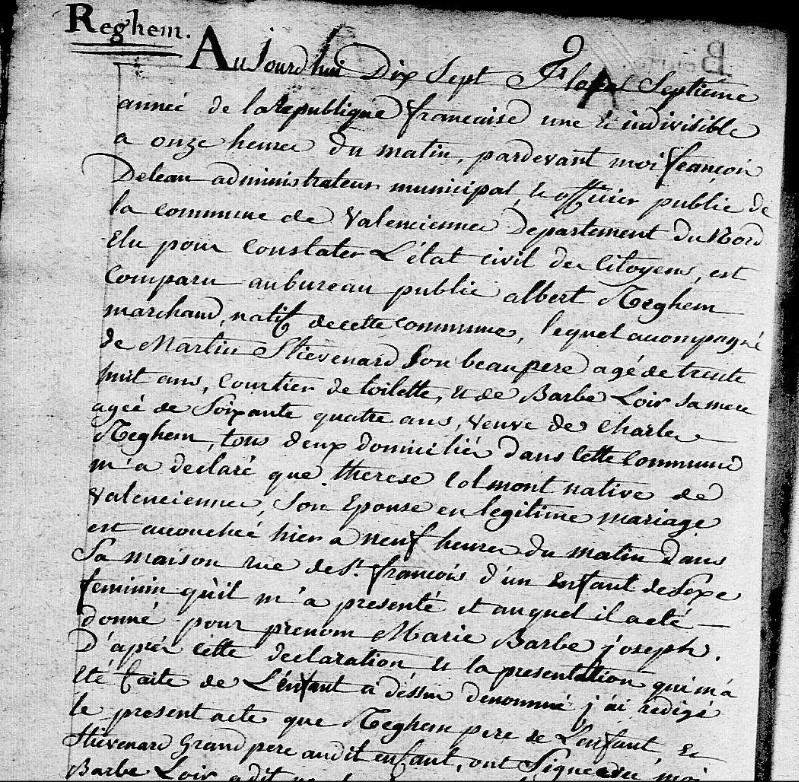 Reghem.
Aujourdhui Dix Sept floreal Septieme
année de la republique francaise une & indivisible
a onze heures du matin, pardevant moi françois
Deleau administrateur municipal, & officier public de
la commune de Valenciennes Departement du Nord
Elu pour Constater L'état civil des Citoyens, est
Comparu au bureau public albert Reghem
marchand, natif de cette commune, lequel accompagné
de Martin Stievenard Son beaupere agé de trente
huit ans, Courtier de toilette, & de Barbe Loir sa mere
agée de Soixante quatre ans, veuve de Charles
Reghem, tous deux domiciliés dans Cette Commune
m'a declaré que therese Colmont native de
Valenciennes, Son Epouse en legitime mariage
est accouchée hier a neuf heures du matin dans
Sa maison rue de St. francois d'un Enfant de Sexe
feminin qu'il m'a presenté et auquel il a eté
donné pour prenom Marie Barbe joseph.
D'après cette declaration & la presentation qui m'a
été faite de L'enfant a dessus denommé j'ai redigé
le present acte que Reghem pere de L'enfant, &
Stievenard Grand pere audit enfant, ont Signé avec moi
Barbe Loir